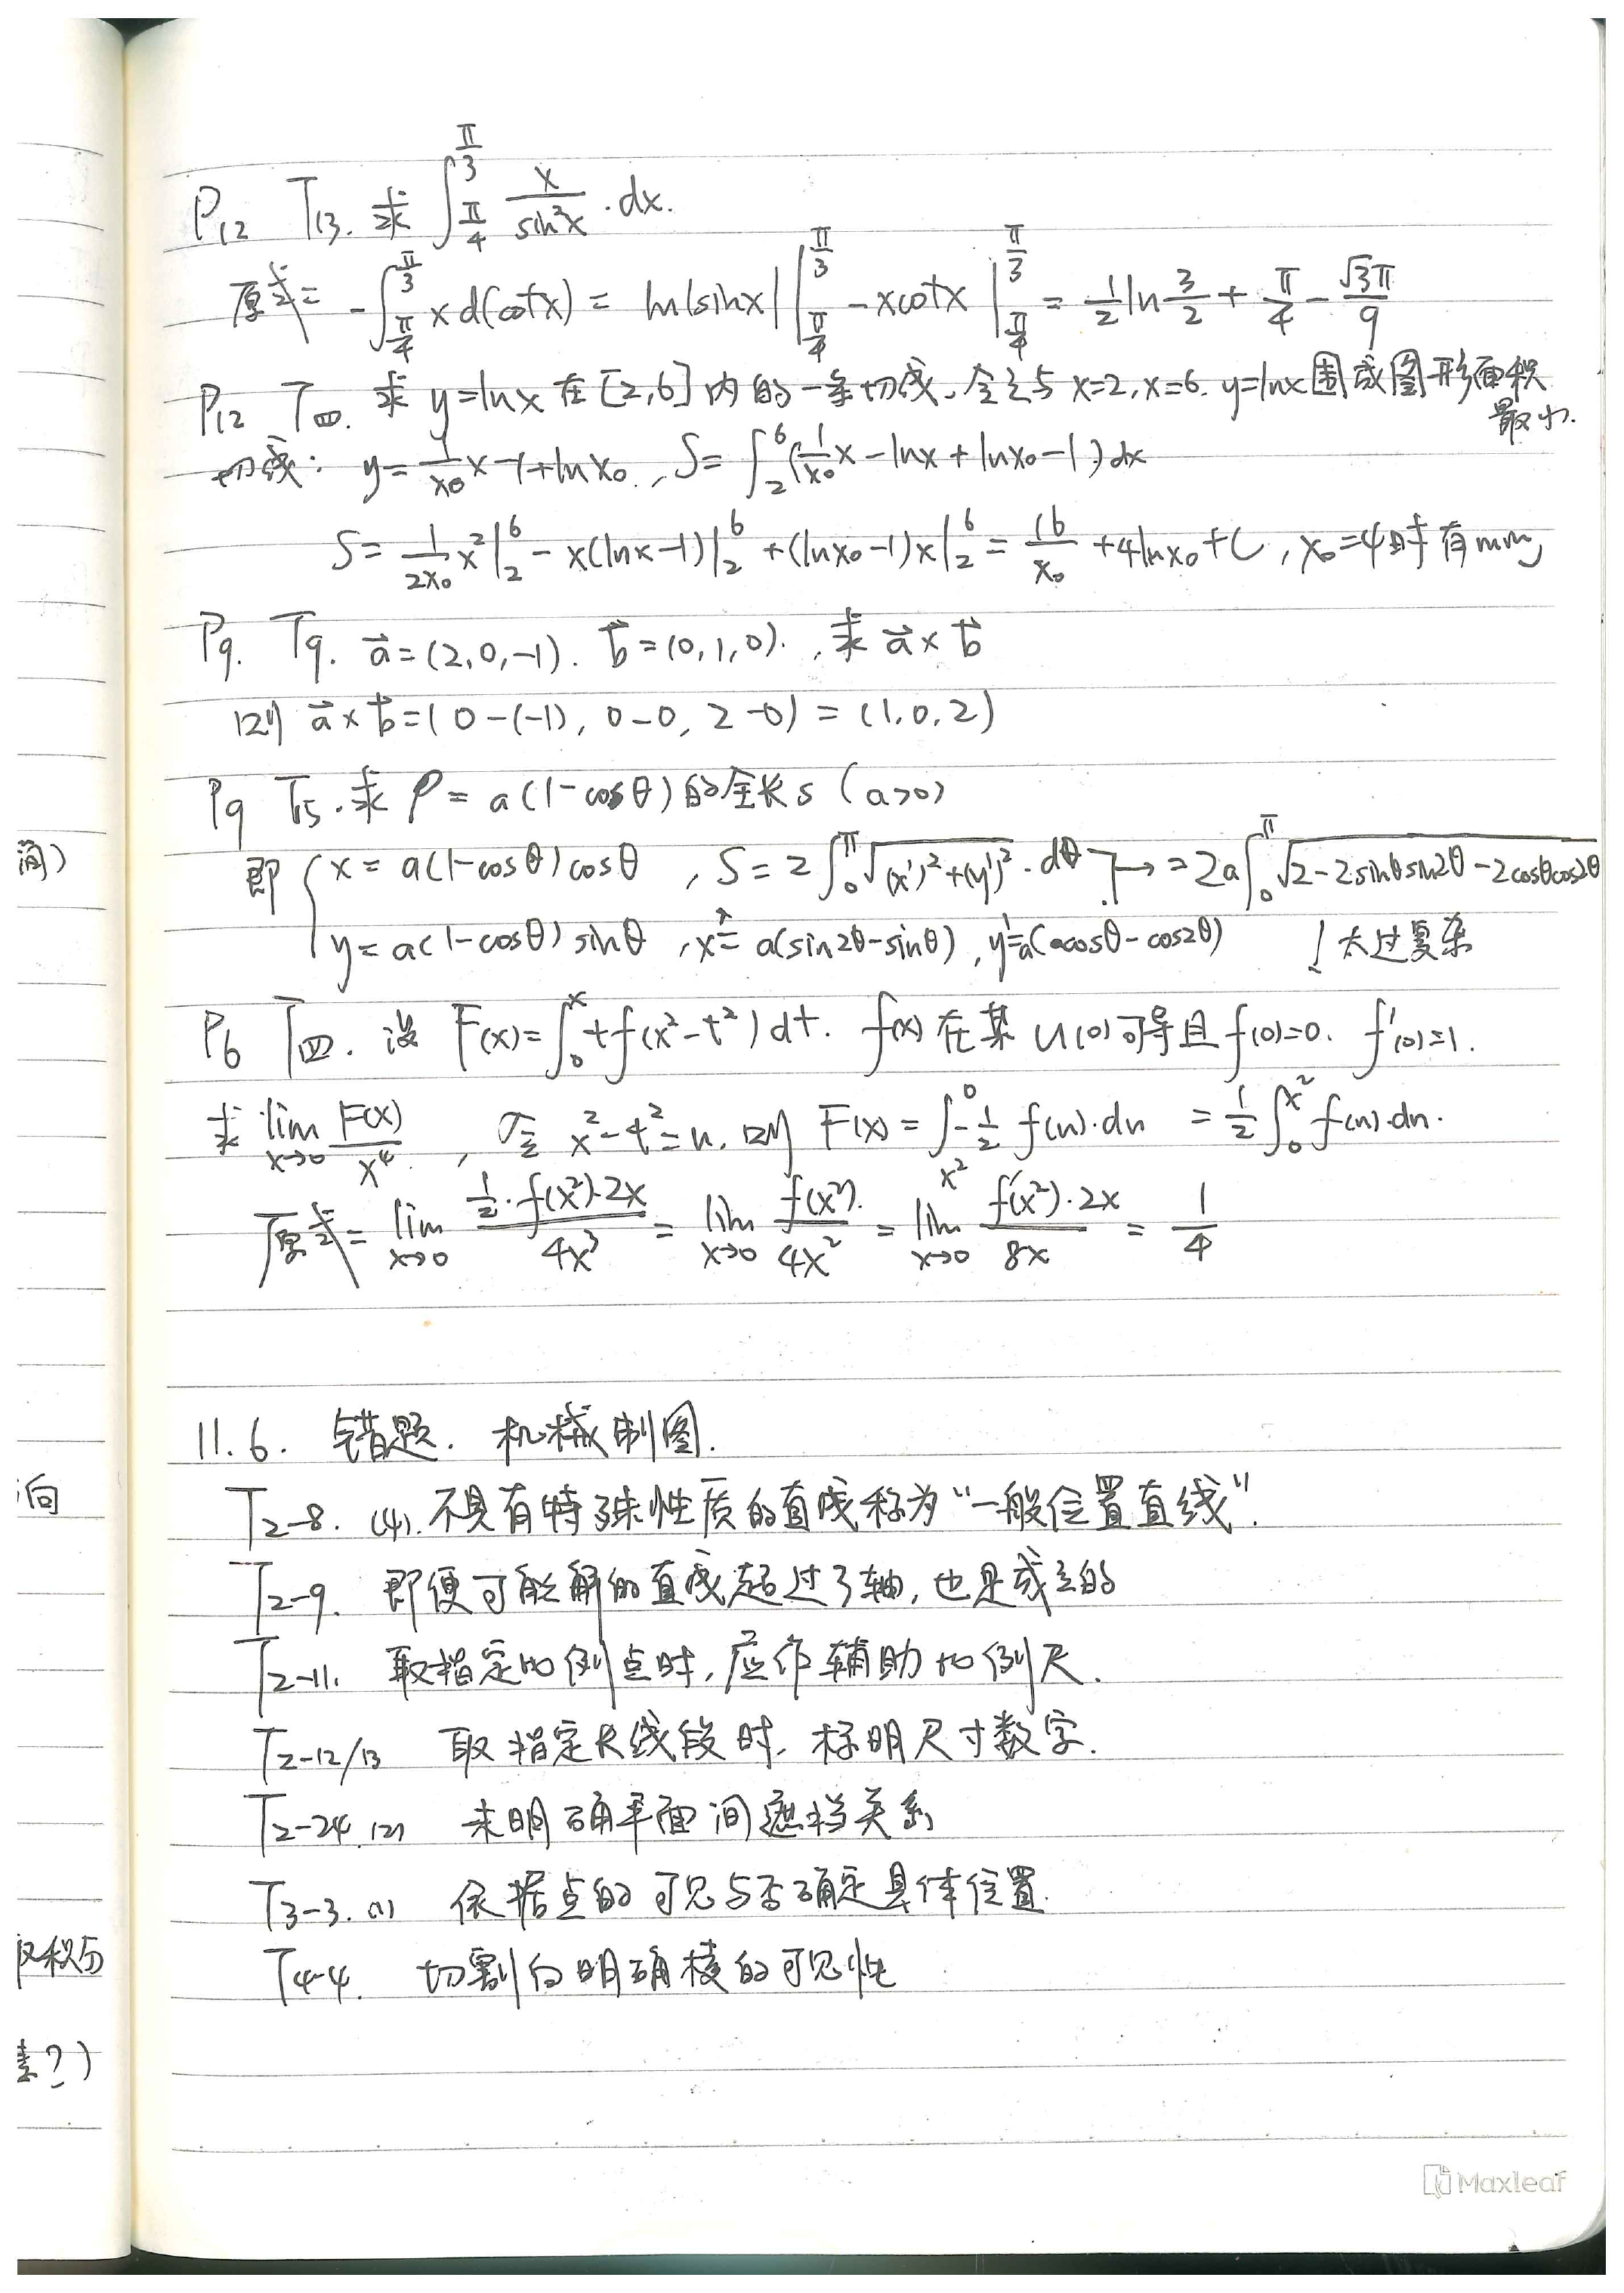 P12 T13. 求 ∫_{π/4}^{π/3} x/sin²x · dx.
原式 = -∫_{π/4}^{π/3} x d(cotx) = ln|sinx| |_{π/4}^{π/3} - xcotx |_{π/4}^{π/3} = 1/2 ln 3/2 + π/4 - √3π/9
P12 T四. 求 y=lnx 在 [2,6] 内的一条切线, 令之与 x=2, x=6. y=lnx 围成图形面积
最小.
切线: y = 1/x₀ x -1 + lnx₀. , S = ∫_2^6 (1/x₀ x - lnx + lnx₀ - 1) dx
S = 1/2x₀ x² |_2^6 - x(lnx-1) |_2^6 + (lnx₀-1)x |_2^6 = 16/x₀ + 4lnx₀ + C , x₀=4时有min
P9. T9. a⃗=(2,0,-1). b⃗=(0,1,0). , 求 a⃗×b⃗
则 a⃗×b⃗=(0-(-1), 0-0, 2-0) = (1,0,2)
P9 T15. 求 ρ = a(1-cosθ) 的全长 s (a>0)
即 { x = a(1-cosθ)cosθ , S = 2∫_0^π √((x')²+(y')²) · dθ → = 2a∫_0^π √(2-2sinθsin2θ-2cosθcos2θ)
y = a(1-cosθ)sinθ , x' = a(sin2θ-sinθ), y'=a(cosθ-cos2θ) ↓ 太过复杂
P6 T四. 设 F(x)=∫_0^x t f(x²-t²) dt. f(x) 在某 U(0) 可导且 f(0)=0. f'(0)=1.
求 lim_{x→0} F(x)/x⁴ , 令 x²-t²=u, 则 F(x) = ∫_{x²}^0 -1/2 f(u)·du = 1/2 ∫_0^{x²} f(u)·du.
原式 = lim_{x→0} (1/2·f(x²)·2x)/4x³ = lim_{x→0} f(x²)/4x² = lim_{x→0} f'(x²)·2x/8x = 1/4
11.6. 错题. 机械制图.
T2-8. (4). 不具有特殊性质的直线称为“一般位置直线”.
T2-9. 即便可能解的直线超过了轴, 也是成立的
T2-11. 取指定比例点时, 应作辅助比例尺.
T2-12/13 取指定长线段时, 标明尺寸数字.
T2-24.(2) 未明确平面间遮挡关系
T3-3.(1) 依据点的可见与否确定具体位置.
T4-4. 切割后明确棱的可见性
间)
向
积分
?)
Maxleaf